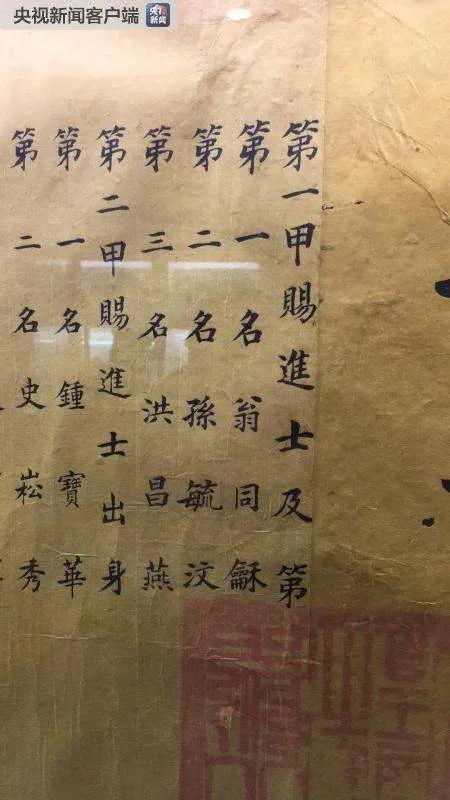 央视新闻客户端
央视
新闻
第一甲賜進士及第
第一名翁同龢
第二名孫毓汶
第三名洪昌燕
第二甲賜進士出身
第一名鍾寶華
第二名史崧秀